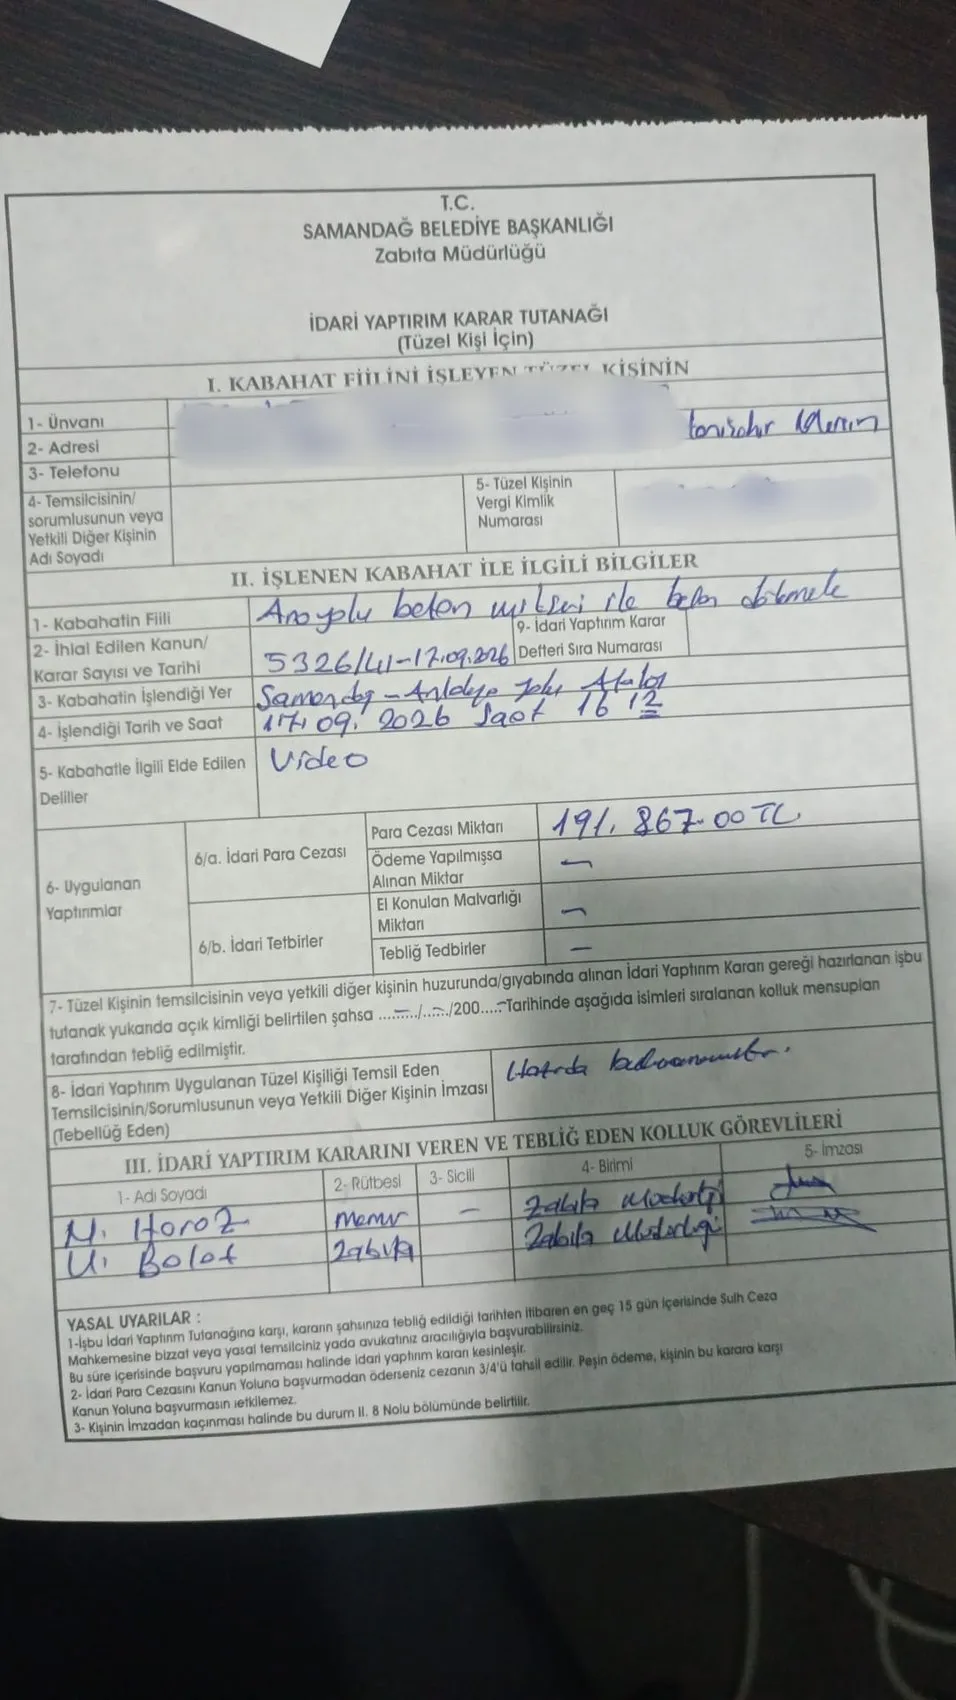 T.C.
SAMANDAĞ BELEDİYE BAŞKANLIĞI
Zabıta Müdürlüğü
İDARİ YAPTIRIM KARAR TUTANAĞI
(Tüzel Kişi İçin)
I. KABAHAT FİİLİNİ İŞLEYEN TÜZEL KİŞİNİN
1- Ünvanı
2- Adresi
3- Telefonu
4- Temsilcisinin/
sorumlusunun veya
Yetkili Diğer Kişinin
Adı Soyadı
5- Tüzel Kişinin
Vergi Kimlik
Numarası
II. İŞLENEN KABAHAT İLE İLGİLİ BİLGİLER
1- Kabahatin Fiili
beton ile beton dökmek
2- İhlal Edilen Kanun/
Karar Sayısı ve Tarihi
5326/41-17.09.2026
9- İdari Yaptırım Karar
Defteri Sıra Numarası
3- Kabahatin İşlendiği Yer
Samandağ -
4- İşlendiği Tarih ve Saat
17.09.2026 Saat 16 12
5- Kabahatle İlgili Elde Edilen
Deliller
Video
6- Uygulanan
Yaptırımlar
6/a. İdari Para Cezası
Para Cezası Miktarı
191.867.00 TL
Ödeme Yapılmışsa
Alınan Miktar
—
6/b. İdari Tetbirler
El Konulan Malvarlığı
Miktarı
—
Tebliğ Tedbirler
—
7- Tüzel Kişinin temsilcisinin veya yetkili diğer kişinin huzurunda/gıyabında alınan İdari Yaptırım Kararı gereği hazırlanan işbu
tutanak yukarıda açık kimliği belirtilen şahsa ...—.../...—./200.....-Tarihinde aşağıda isimleri sıralanan kolluk mensupları
tarafından tebliğ edilmiştir.
8- İdari Yaptırım Uygulanan Tüzel Kişiliği Temsil Eden
Temsilcisinin/Sorumlusunun veya Yetkili Diğer Kişinin İmzası
(Tebellüğ Eden)
III. İDARİ YAPTIRIM KARARINI VEREN VE TEBLİĞ EDEN KOLLUK GÖREVLİLERİ
1- Adı Soyadı
2- Rütbesi
3- Sicili
4- Birimi
5- İmzası
N. Horoz
Memur
—
Zabıta Müdürlüğü
U. Bolat
Zabıta
Zabıta Müdürlüğü
YASAL UYARILAR :
1-İşbu İdari Yaptırım Tutanağına karşı, kararın şahsınıza tebliğ edildiği tarihten itibaren en geç 15 gün içerisinde Sulh Ceza
Mahkemesine bizzat veya yasal temsilciniz yada avukatınız aracılığıyla başvurabilirsiniz.
Bu süre içerisinde başvuru yapılmaması halinde idari yaptırım kararı kesinleşir.
2- İdari Para Cezasını Kanun Yoluna başvurmadan öderseniz cezanın 3/4'ü tahsil edilir. Peşin ödeme, kişinin bu karara karşı
Kanun Yoluna başvurmasın ietkilemez.
3- Kişinin İmzadan kaçınması halinde bu durum II. 8 Nolu bölümünde belirtilir.